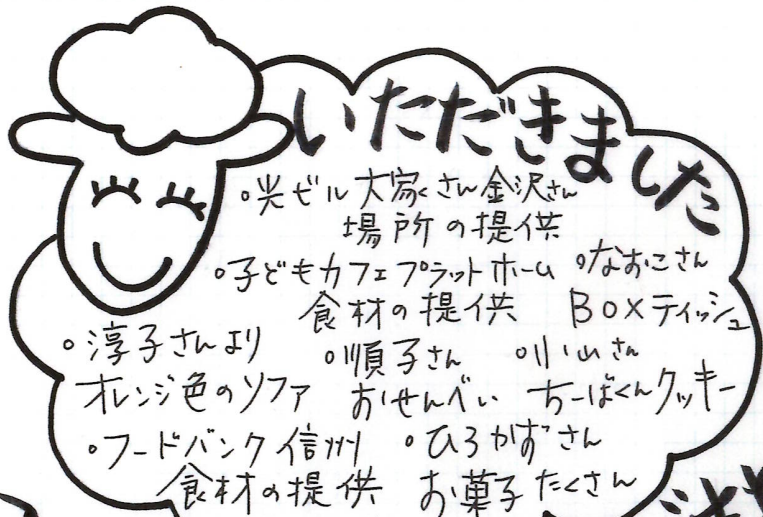 いただきました
◦光ビル大家さん金沢さん
場所の提供
◦子どもカフェプラットホーム
食材の提供
◦なおこさん
BOXティッシュ
◦淳子さんより
オレンジ色のソファ
◦順子さん
おせんべい
◦小山さん
ちーばくんクッキー
◦フードバンク信州
食材の提供
◦ひろかずさん
お菓子たくさん